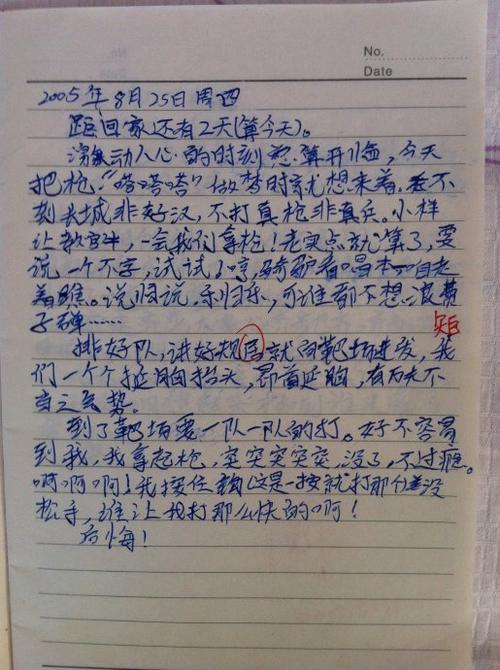 No.
Date
2005年8月25日周四
距回家还有2天(算今天)。
激动人心的时刻总算开临,今天
把枪"嗒嗒嗒"做梦时就想来着。不
到长城非好汉,不打真枪非真兵。小样
让教官牛,一会我们拿枪!老实点就算了,要
说一个不字,试试!哼,骑驴看唱本
着瞧。说归说,乐归乐,可谁都不想浪费
子弹……
矩
排好队,讲好规后就向靶场进发,我
们一个个挺胸抬头,昂首阔胸,有
当之气势。
到了靶场要一队一队的打。好不容易
到我,我拿起枪,突突突突突,没了,不过瘾。
啊啊啊!我按住这是一按就打那什么没
松手,谁让我打那么快的啊!
后悔!